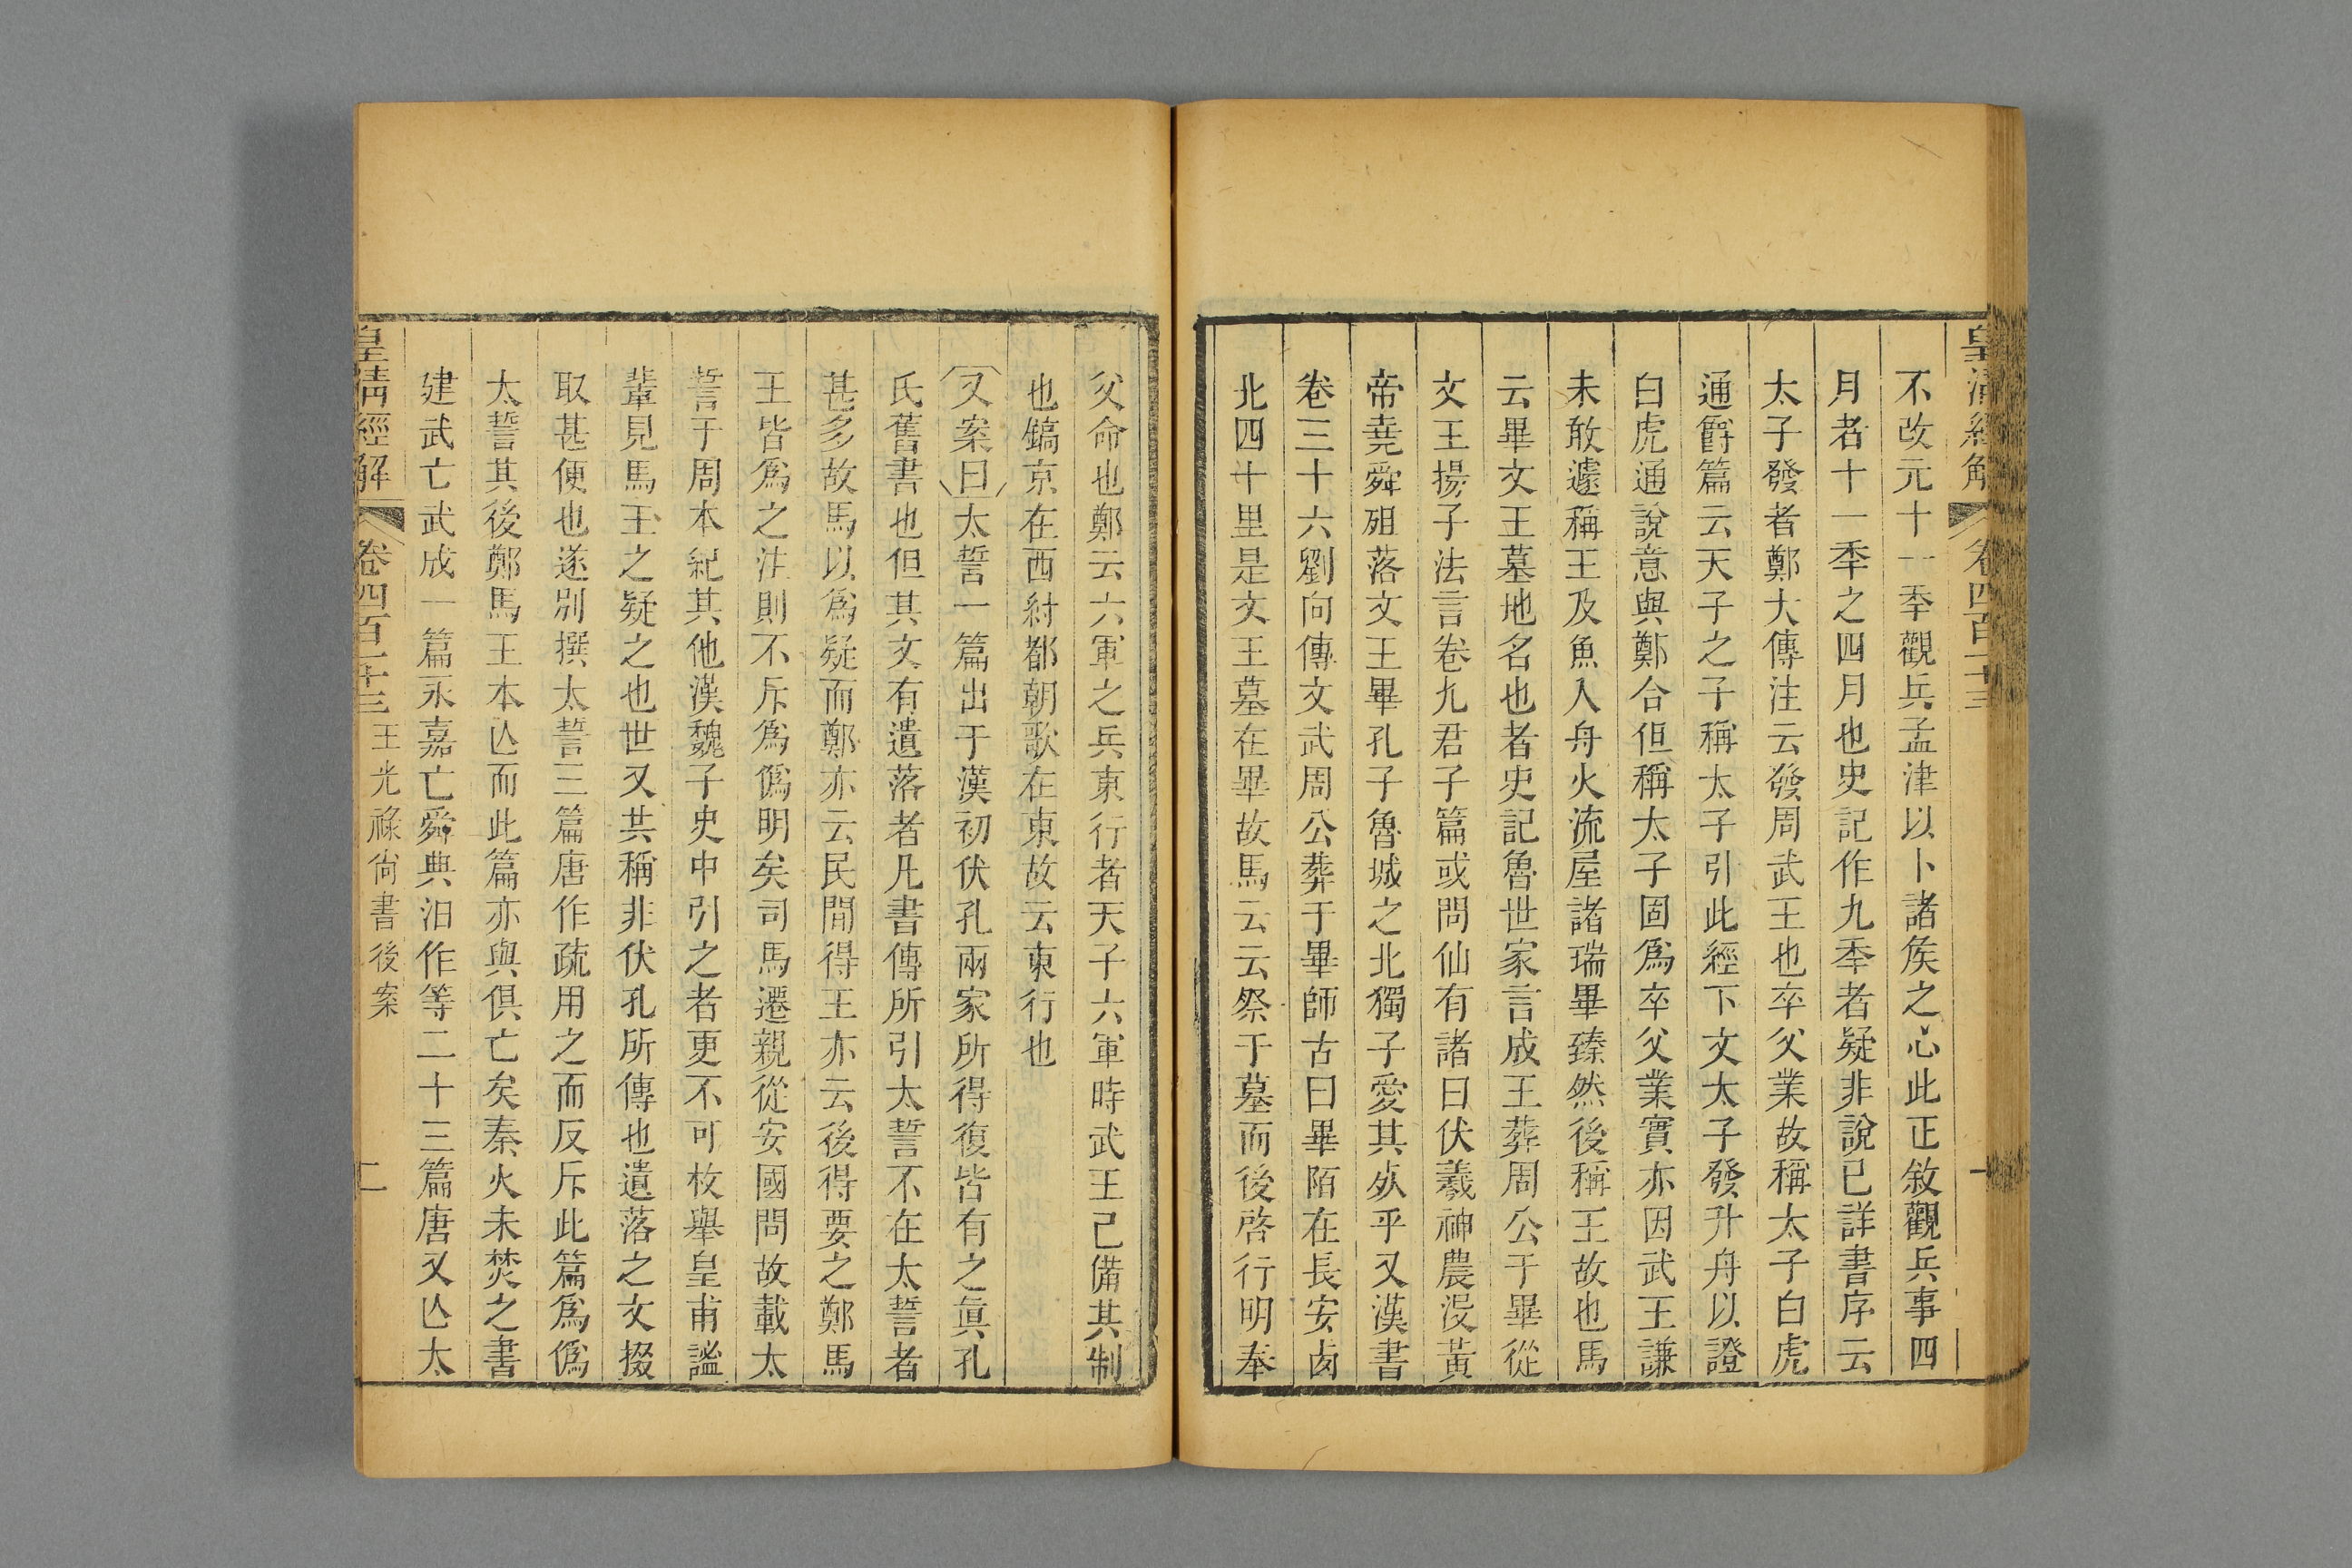 皇清經解 卷四百二十三 一
不改元十一秊觀兵孟津以卜諸矦之心此正敘觀兵事四
月者十一秊之四月也史記作九秊者疑非說已詳書序云
太子發者鄭大傳注云發周武王也卒父業故稱太子白虎
通爵篇云天子之子稱太子引此經下文太子發升舟以證
白虎通說意與鄭合但稱太子固爲卒父業實亦因武王謙
未敢遽稱王及魚入舟火流屋諸瑞畢臻然後稱王故也馬
云畢文王墓地名也者史記魯世家言成王葬周公于畢從
文王揚子法言卷九君子篇或問仙有諸曰伏羲神農沒黃
帝堯舜殂落文王畢孔子魯城之北獨子愛其𣦸乎又漢書
卷三十六劉向傳文武周公葬于畢師古曰畢陌在長安𠧧
北四十里是文王墓在畢故馬云云祭于墓而後啓行明奉
父命也鄭云六軍之兵東行者天子六軍時武王已備其制
也鎬京在西紂都朝歌在東故云東行也
又案曰太誓一篇出于漢初伏孔兩家所得復皆有之眞孔
氏舊書也但其文有遺落者凡書傳所引太誓不在太誓者
甚多故馬以爲疑而鄭亦云民閒得王亦云後得要之鄭馬
王皆爲之注則不斥爲僞明矣司馬遷親從安國問故載太
誓于周本紀其他漢魏子史中引之者更不可枚舉皇甫謐
輩見馬王之疑之也世又共稱非伏孔所傳也遺落之文掇
取甚便也遂別撰太誓三篇唐作疏用之而反斥此篇爲僞
太誓其後鄭馬王本亾而此篇亦與俱亡矣秦火未焚之書
建武亡武成一篇永嘉亡舜典汨作等二十三篇唐又亾太
皇清經解 卷四百二十三 王光祿尙書後案 二